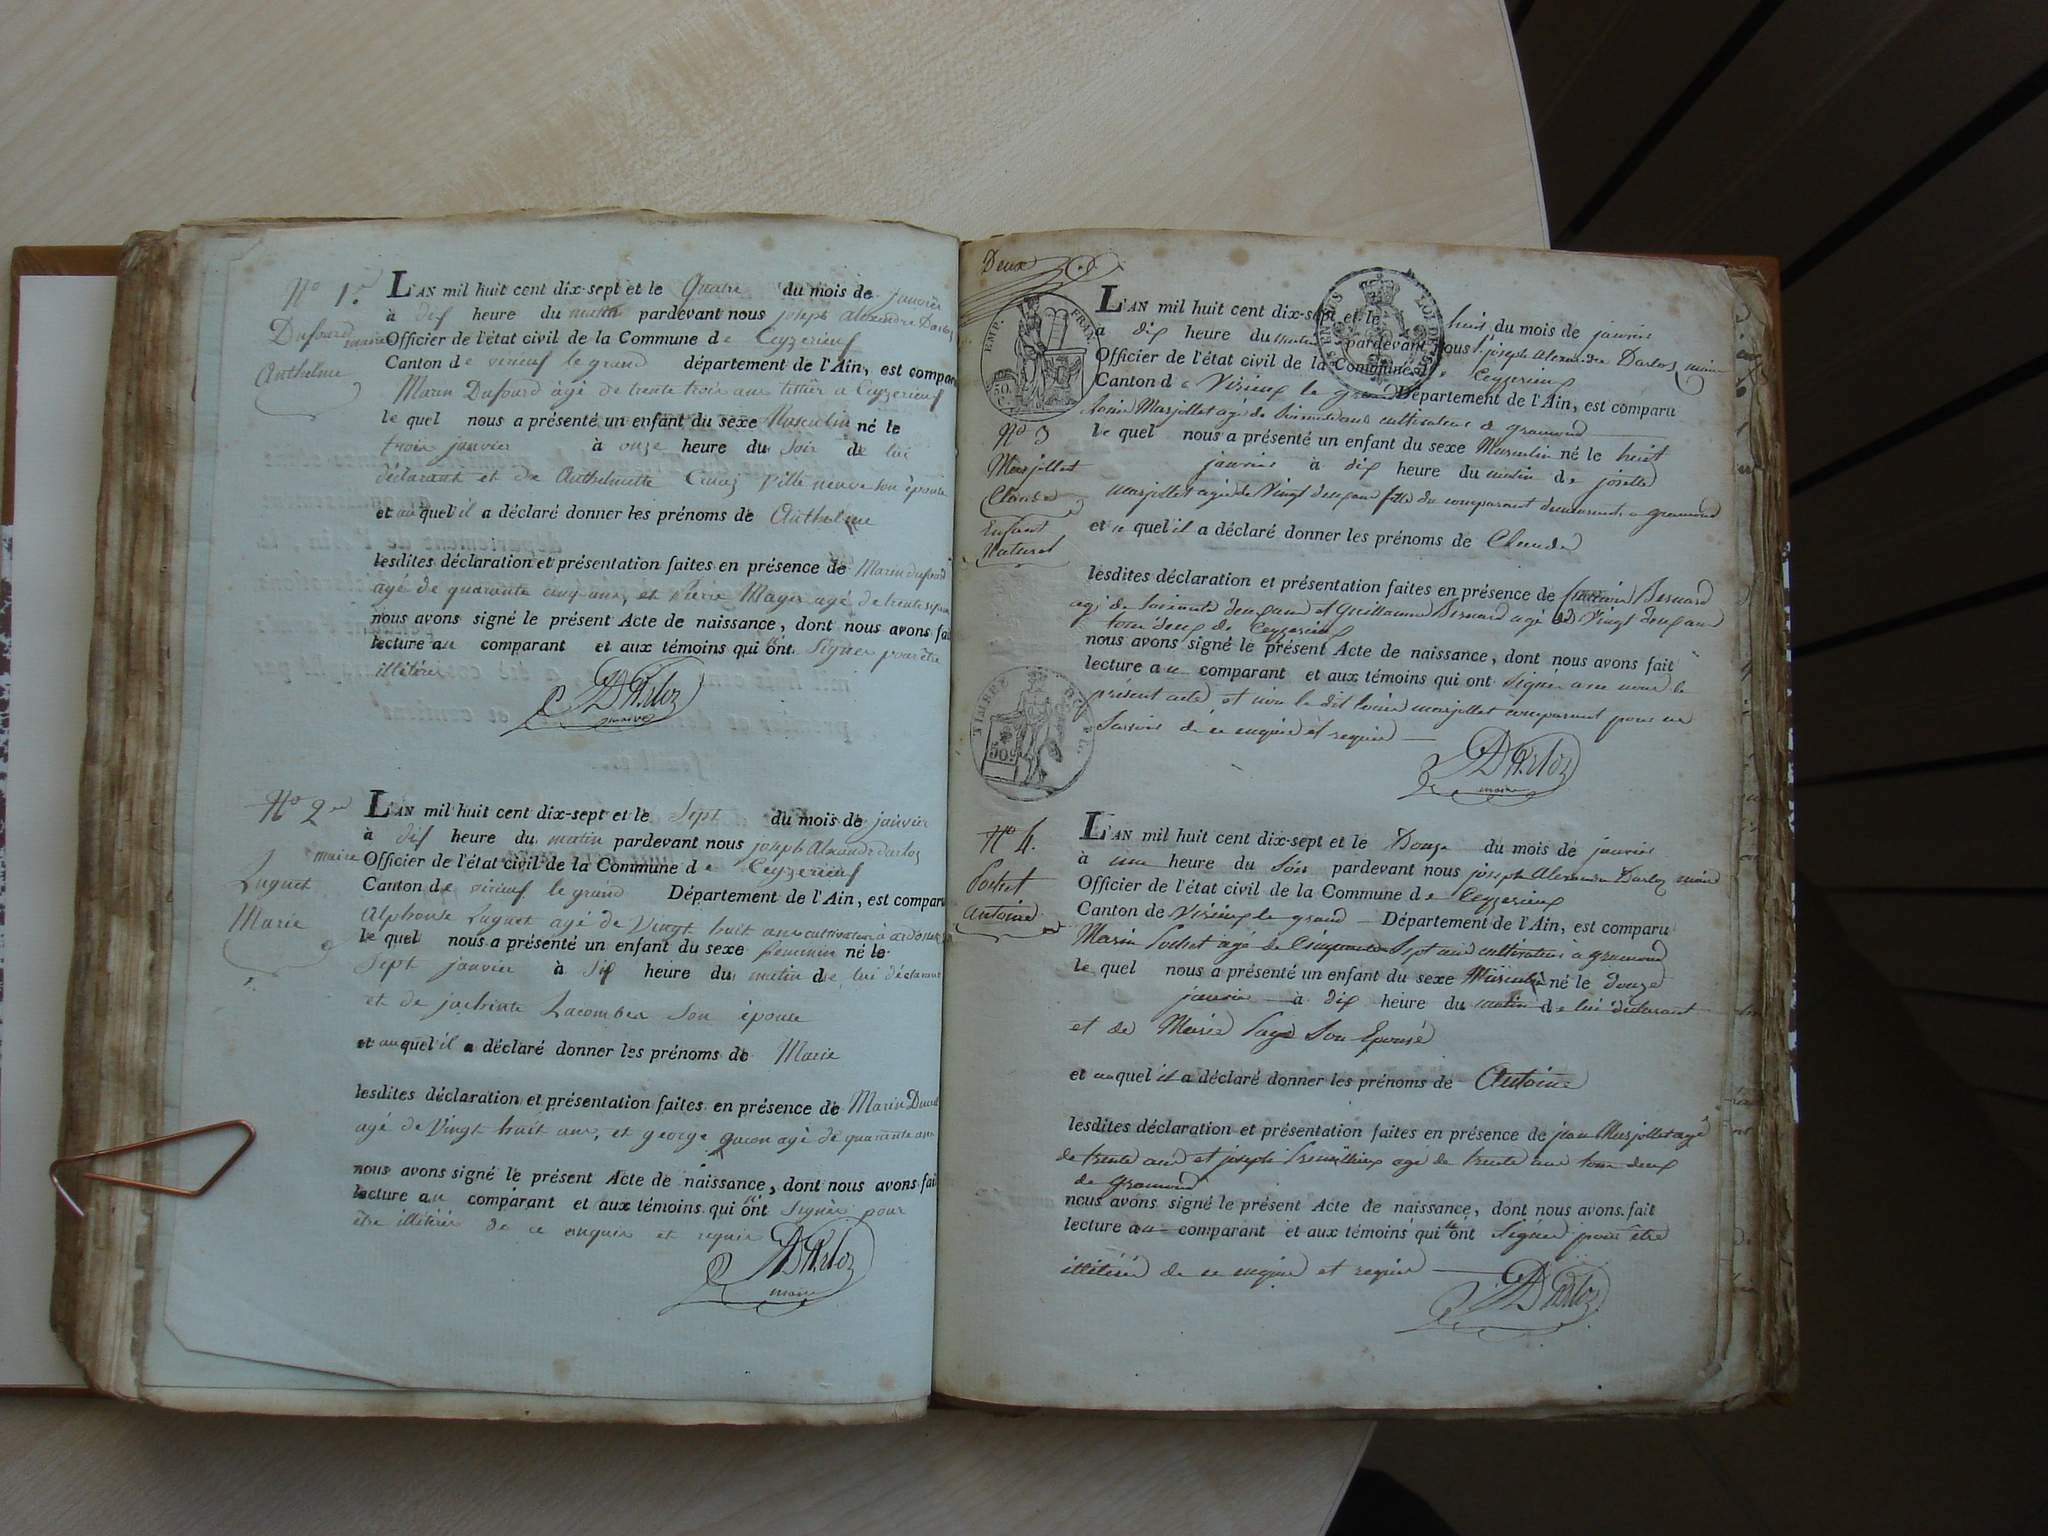 No 1er
Dufourd
Anthelme
L'AN mil huit cent dix-sept et le Quatre du mois de janvier
à dix heure du matin pardevant nous joseph alexandre Darloz
maire Officier de l'état civil de la Commune de Ceyzerieux
Canton de virieux le grand département de l'Ain, est comparu
Marin Dufourd âgé de trente trois ans tittier a Ceyzerieux
le quel nous a présenté un enfant du sexe Masculin né le
trois janvier à onze heure du Soir de lui
déclarant et de Anthelmette ville neuve son épouse
et auquel il a déclaré donner les prénoms de Anthelme
lesdites déclaration et présentation faites en présence de Marin dufourd
agé de quarante cinq ans, et Pierre Mager agé de trente
nous avons signé le présent Acte de naissance, dont nous avons fait
lecture au comparant et aux témoins qui n'ont Signer pour être
illitérés
Darloz
maire
No 2
Luguet
Marie
L'AN mil huit cent dix-sept et le Sept du mois de janvier
à dix heure du matin pardevant nous joseph Alexandre darloz
maire Officier de l'état civil de la Commune de Ceyzerieux
Canton de virieux le grand Département de l'Ain, est comparu
Alphonse Luguet agé de Vingt huit ans cultivateur à
le quel nous a présenté un enfant du sexe feminin né le
Sept janvier à Six heure du matin de lui déclarant
et de jachinte Lacombe Son épouse
et auquel il a déclaré donner les prénoms de Marie
lesdites déclaration et présentation faites en présence de Marin
agé de Vingt huit ans, et george agé de quarante ans
nous avons signé le présent Acte de naissance, dont nous avons fait
lecture au comparant et aux témoins qui n'ont Signer pour
être illitérés de ce enquis et requis
Darloz
maire
Deux
EMP. FRAN.
50 C.
TIMBRE ROYAL
50 C
No 3
Masjollet
Claude
Enfant
Naturel
L'AN mil huit cent dix-sept et le huit du mois de janvier
a dix heure du matin pardevant nous joseph Alexandre Darloz maire
Officier de l'état civil de la Commune de Ceyzerieux
Canton de Virieux le grand Département de l'Ain, est comparu
Masjollet agé de ans cultivateur a gramond
le quel nous a présenté un enfant du sexe Masculin né le huit
janvier à dix heure du matin de josette
Masjollet agée de Vingt deux ans fille du comparant demeurant a gramond
et au quel il a déclaré donner les prénoms de Claude
lesdites déclaration et présentation faites en présence de Bernard
agé de deux ans et Guillaume Bernard agé de Vingt deux ans
tous deux de Ceyzerieux
nous avons signé le présent Acte de naissance, dont nous avons fait
lecture au comparant et aux témoins qui ont Signé avec nous le
présent acte, et non le dit masjollet comparant pour ne
Savoir de ce enquis et requis
Darloz
maire
No 4.
Pochet
Antoine
L'AN mil huit cent dix-sept et le Douze du mois de janvier
à une heure du Soir pardevant nous joseph Alexandre Darloz maire
Officier de l'état civil de la Commune de Ceyzerieux
Canton de Virieux le grand Département de l'Ain, est comparu
Marin Pochet agé de Cinquante Sept ans cultivateur a gramond
le quel nous a présenté un enfant du sexe Masculin né le douze
janvier à dix heure du matin de lui déclarant
et de Marie Page Son Epouse
et auquel il a déclaré donner les prénoms de Antoine
lesdites déclaration et présentation faites en présence de jean Masjollet agé
de trente ans et joseph agé de trente ans tous deux
de gramond
nous avons signé le présent Acte de naissance, dont nous avons fait
lecture au comparant et aux témoins qui n'ont Signer pour être
illitérés de ce enquis et requis
Darloz